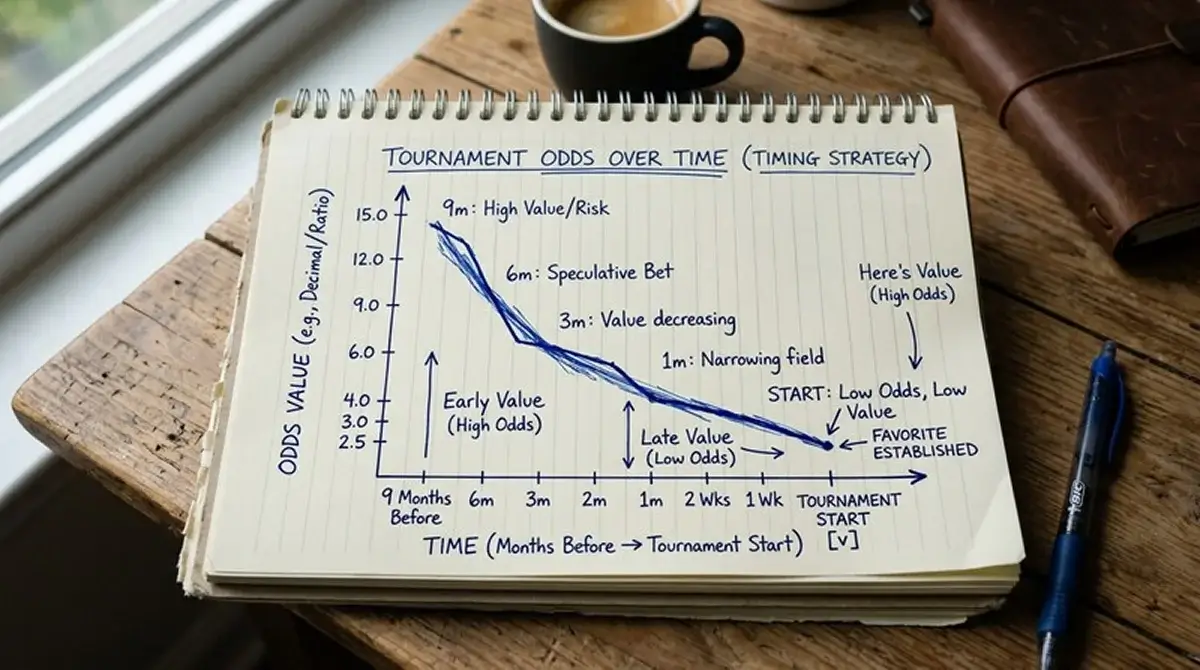 TOURNAMENT ODDS OVER TIME (TIMING STRATEGY)
ODDS VALUE (e.g., Decimal/Ratio)
15.0
12.0
9.0
6.0
4.0
3.0
2.5
9m: High Value/Risk
6m: Speculative Bet
3m: Value decreasing
1m: Narrowing field
Here's Value
(High Odds)
START: Low Odds, Low
Value
FAVORITE
ESTABLISHED
Early Value
(High Odds)
Late Value
(Low Odds)
9 Months
Before
6m
3m
2m
1m
2 Wks
1 Wk
TOURNAMENT
START
[v]
TIME (Months Before → Tournament Start)
BIC